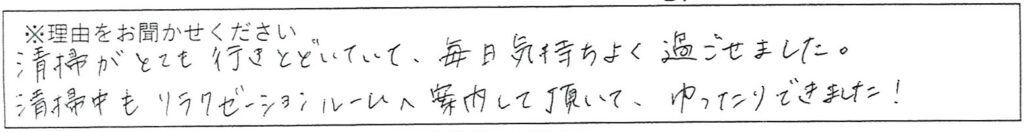 ※理由をお聞かせください
清掃がとても行きとどいていて、毎日気持ちよく過ごせました。
清掃中もリラクゼーションルームへ案内して頂いて、ゆったりできました！